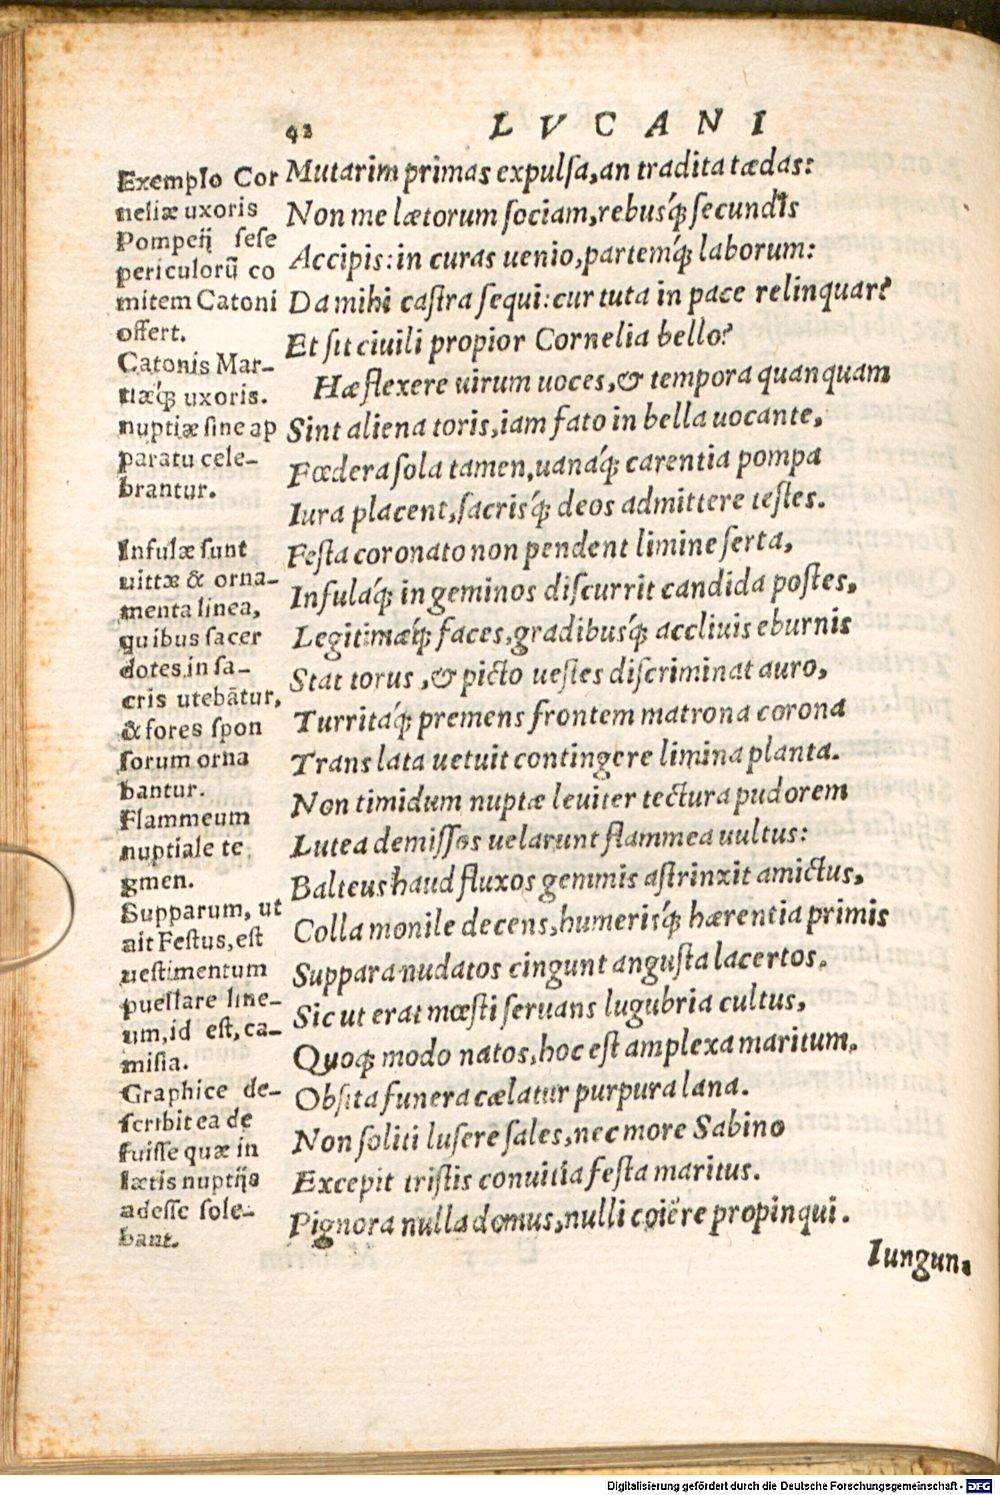 42 LVCANI
Mutarim primas expulsa, an tradita tædas:
Non me lætorum sociam, rebusq́; secundis
Accipis: in curas uenio, partemq́; laborum:
Da mihi castra sequi: cur tuta in pace relinquar?
Et sit ciuili propior Cornelia bello?
Hæ flexere uirum uoces, & tempora quanquam
Sint aliena toris, iam fato in bella uocante,
Fœdera sola tamen, uanaq́; carentia pompa
Iura placent, sacrisq́; deos admittere testes.
Festa coronato non pendent limine serta,
Infulaq́; in geminos discurrit candida postes,
Legitimæq́; faces, gradibusq́; accliuis eburnis
Stat torus, & picto uestes discriminat auro,
Turritaq́; premens frontem matrona corona
Translata uetuit contingere limina planta.
Non timidum nuptæ leuiter tectura pudorem
Lutea demissos uelarunt flammea uultus:
Balteus haud fluxos gemmis astrinxit amictus,
Colla monile decens, humerisq́; hærentia primis
Suppara nudatos cingunt angusta lacertos.
Sic ut erat mœsti seruans lugubria cultus,
Quoq; modo natos, hoc est amplexa maritum.
Obsita funera cælatur purpura lana.
Non soliti lusere sales, nec more Sabino
Excepit tristis conuitia festa maritus.
Pignora nulla domus, nulli coiêre propinqui.
Iungun-
Exemplo Cor
neliæ uxoris
Pompeij sese
periculorũ co
mitem Catoni
offert.
Catonis Mar-
tiæq́; uxoris.
nuptiæ sine ap
paratu cele-
brantur.
Infulæ sunt
uittæ & orna-
menta linea,
quibus sacer
dotes, in sa-
cris utebãtur,
& fores spon
sorum orna
bantur.
Flammeum
nuptiale te
gmen.
Supparum, ut
ait Festus, est
uestimentum
puellare line-
um, id est, ca-
misia.
Graphice de-
scribit ea de
fuisse quæ in
lætis nuptijs
adesse sole-
bant.
Digitalisierung gefördert durch die Deutsche Forschungsgemeinschaft - DFG